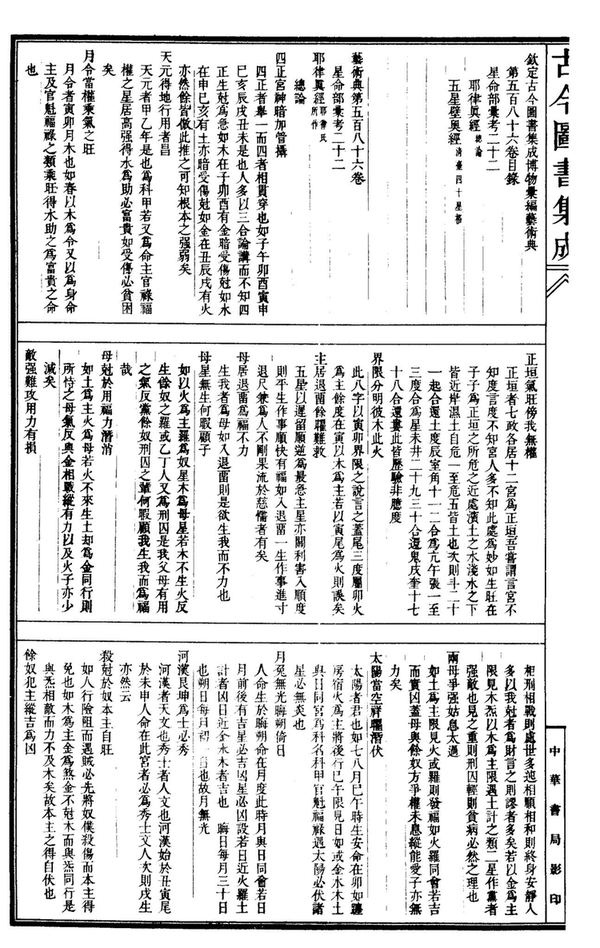 古今圖書集成
欽定古今圖書集成博物彙編藝術典
第五百八十六卷目錄
星命部彙考二十二
耶律眞經總論
五星壁奧經
藝術典第五百八十六卷
星命部彙考二十二
耶律眞經
總論
四正宮神暗加管攝
四正者舉一而四者相貫穿也如子午卯酉寅申
巳亥辰戌丑未是也人多以三合論講而不知四
正生尅爲急如木在子卯酉有金暗受傷尅如水
在申巳亥有土亦暗受傷尅如金在丑辰戌有火
亦然餘皆倣此推之可知根本之强弱矣
天元得地行用者昌
天元者甲乙年是也爲科甲若又爲命主官祿福
權之星居高强得水爲助必富貴如受傷必貧困
矣
月令當權乘氣之旺
月令者寅卯月木也如春以木爲令又以爲身命
主及官魁福祿之類乘旺得水助之爲富貴之命
也
正垣氣旺傍我無權
正垣者七政各居十二宮爲正垣吾嘗謂言宮不
知度言度不知宮人多不知此處爲妙如生旺在
子子爲正垣之所危之近處濱土之水淺水之下
皆近岸濕土自危一至危五皆土也次則斗二十
一起合還土度辰室角十一二合爲亢午張一至
三度合爲星未井二十九三十合還鬼戌奎十七
十八合還婁此皆歷驗非臆度
界限分明彼木此火
此八字以寅卯界限之說言之蓋尾三度屬卯火
爲主餘度在寅以木爲主若以寅尾爲火則誤矣
主居退留餘曜難救
五星以遲留順逆爲最急主星亦關利害入順度
則平生作事順快有福如入退留一生作事進寸
退尺兼爲人不剛果流於慈懦者有矣
母居退留爲福不力
生我者爲母如入退留則是欲生我而不力也
母星無生何暇顧子
如以火爲主羅爲奴星木爲母星若木不生火反
生餘奴之羅或乙丁人又爲刑囚是我父母有用
之氣反黨餘奴刑囚之輩何暇顧我生我而爲福
哉
母尅於用福力潛消
如土爲主火爲母若火不來生土却爲金同行則
所恃之母氣反與金相戰縱有力以及火子亦少
減矣
敵强難攻用力有損
相刑相戰則處世多迍相順相和則終身安靜人
多以我尅者爲財言之則謬者多矣若以金爲主
限見木炁以木爲主限遇土計之類二星作黨者
强敵也見之重則刑囚輕則貧病必然之理也
兩母爭强姑息太過
如土爲主限見火或羅則發福如火羅同會若吉
而實凶蓋母與餘奴方爭權未息縱能愛子亦無
力矣
太陽當空諸曜潛伏
太陽者君也如七八月巳午時生安命在卯如躔
房宿火爲主將後行巳午限見日如或金水木土
與日同宮爲科名科甲官魁福祿遇太陽必伏諸
星必無炎也
月兔無光晦朔倚日
人命生於晦朔命在月度此時月與日同會若日
月前後有吉星必吉凶星必凶設若日近火羅土
計者凶日近金水木者吉也 晦日每月三十日
也朔日每月初一日也故月無光
河漢艮坤爲士必秀
河漢者天文也秀士者人文也河漢始於丑寅尾
於未申人命在此宮者必爲秀士文人次則戌生
亦然云
殺尅於奴本主自旺
如人行險阻而遇賊必先將奴僕殺傷而本主得
免也如木爲主金爲煞金不尅木而與炁同行是
與炁相敵而力不及木矣故本主之得自伏也
餘奴犯主縱吉爲凶
中華書局影印